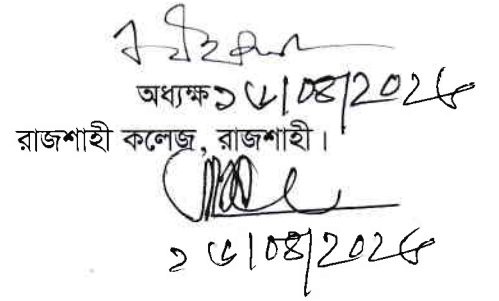 অধ্যক্ষ ১৫/০৪/২০২৫
রাজশাহী কলেজ, রাজশাহী।
১৫/০৪/২০২৫